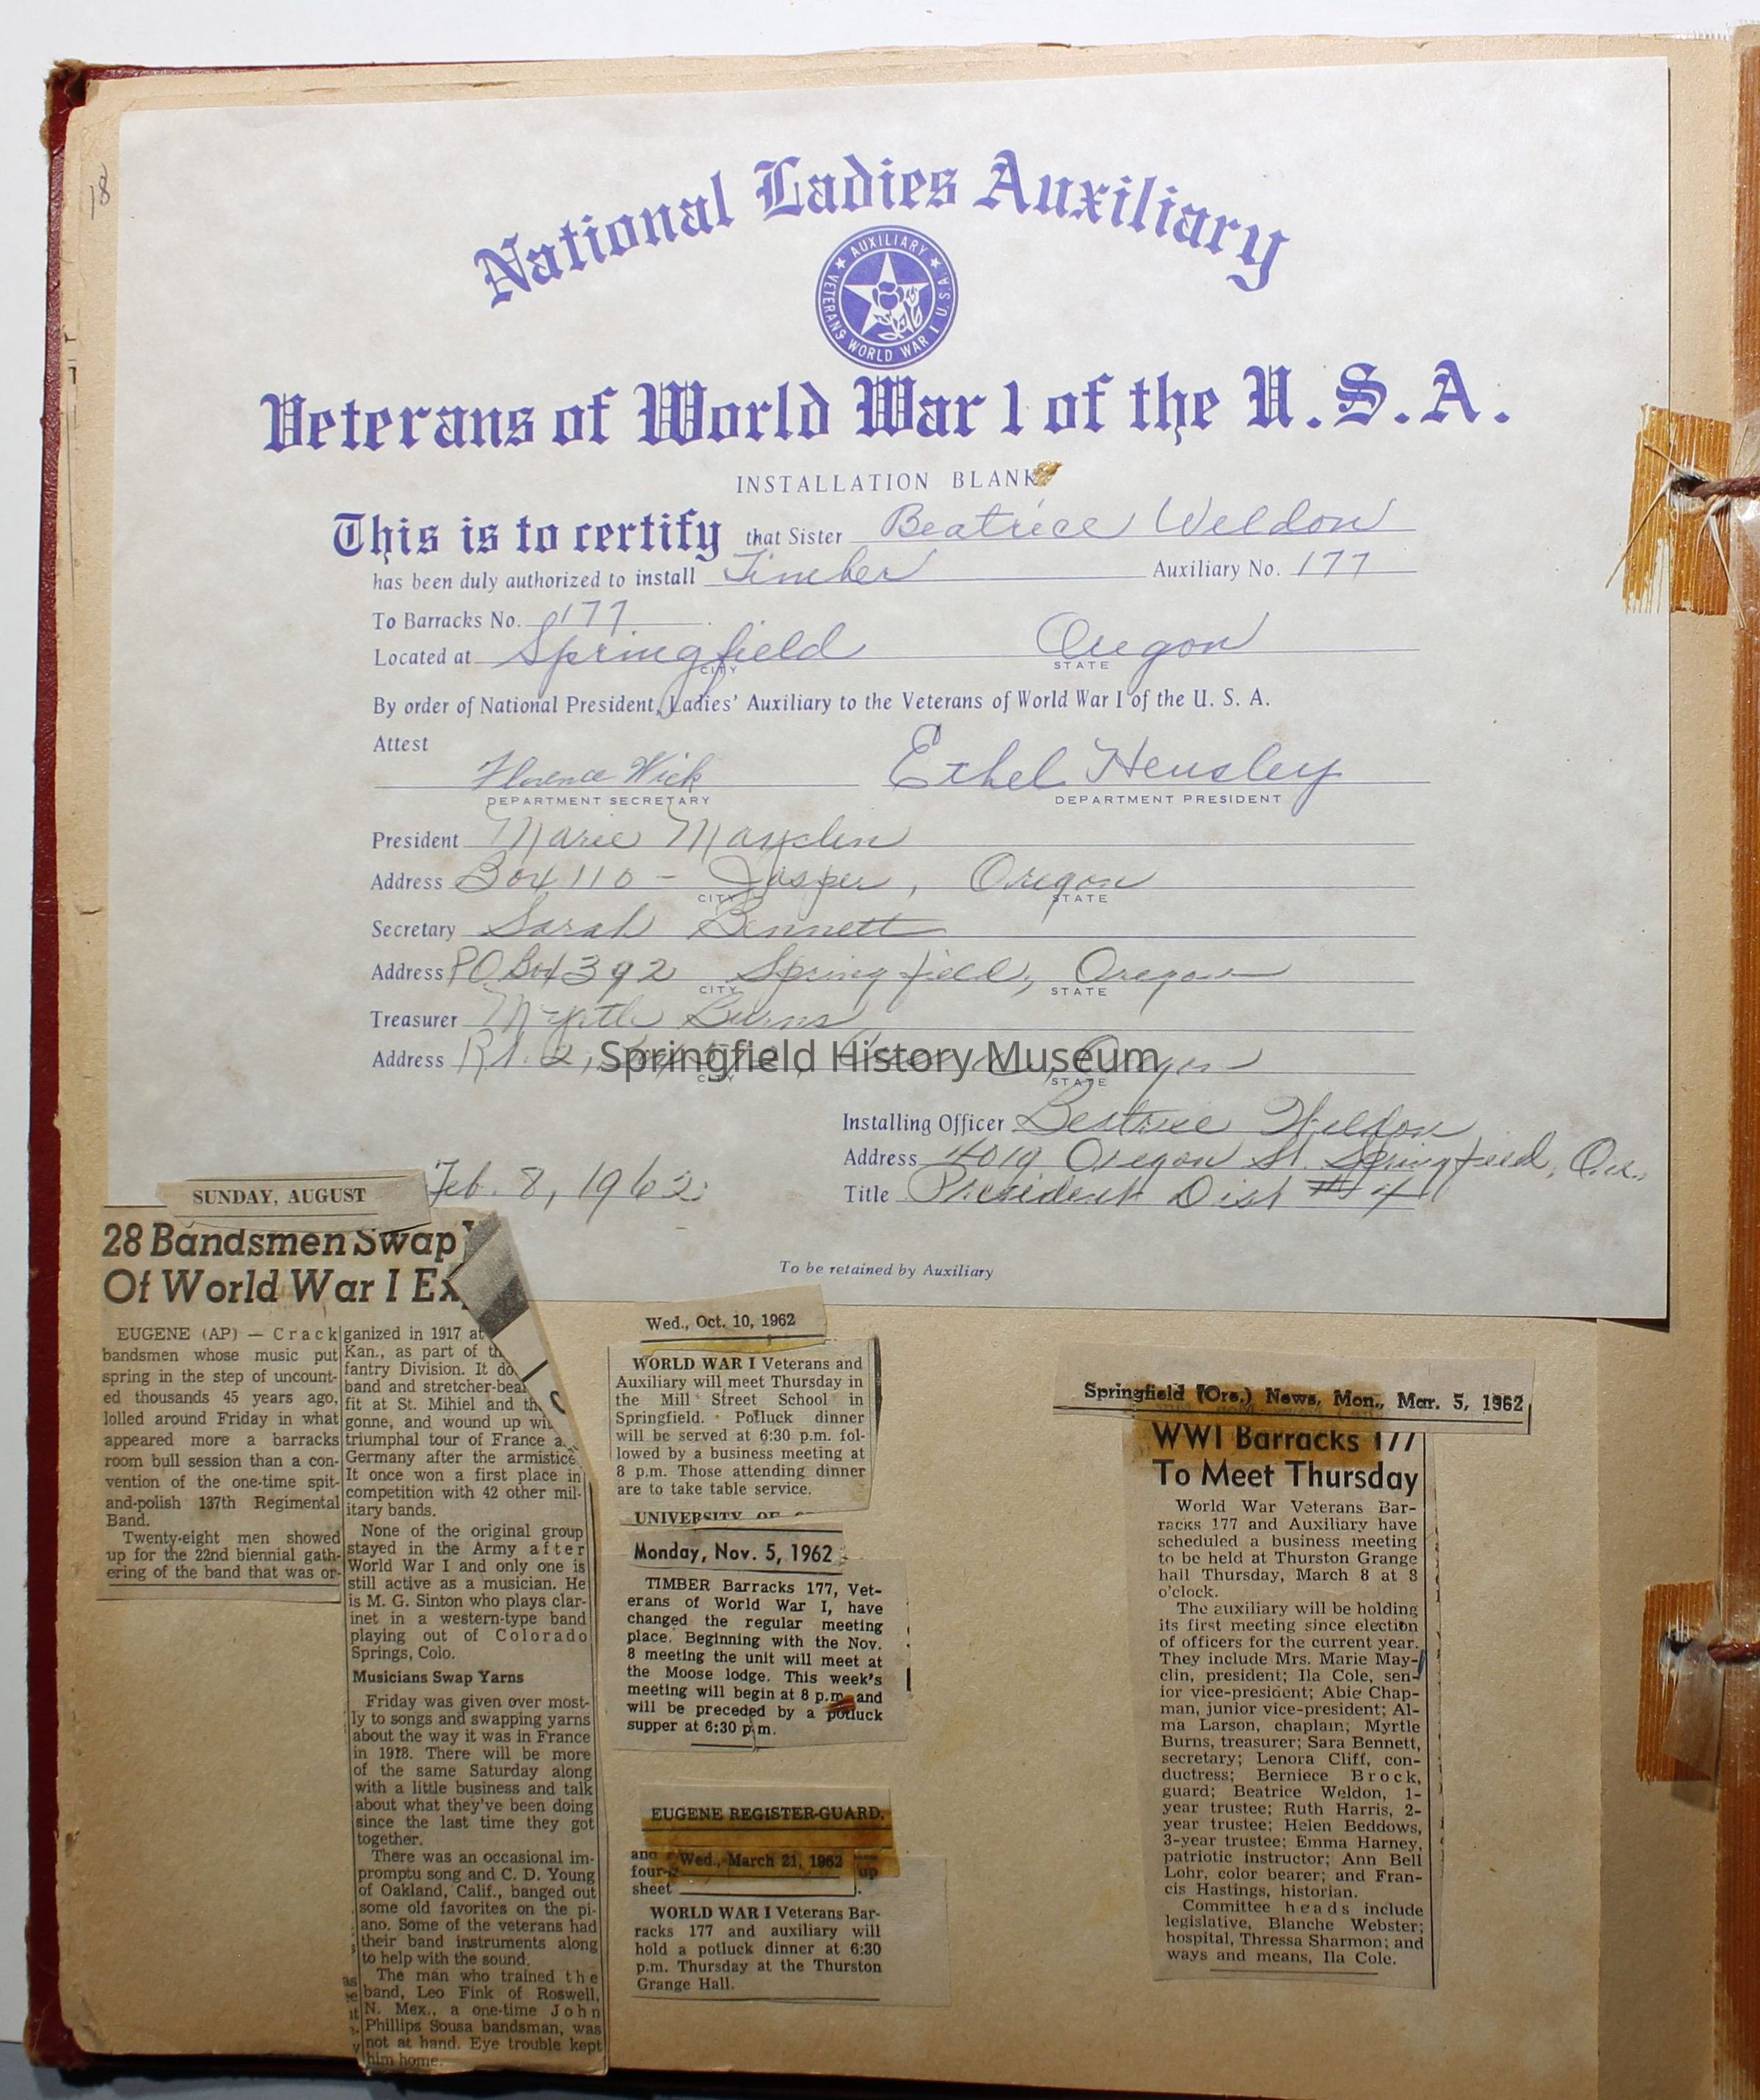 18
National Ladies Auxiliary
★ AUXILIARY ★
VETERANS WORLD WAR I U.S.A.
Veterans of World War 1 of the U.S.A.
INSTALLATION BLANK
This is to certify that Sister Beatrice Weldon
has been duly authorized to install Timber Auxiliary No. 177
To Barracks No. 177
Located at Springfield Oregon
CITY STATE
By order of National President, Ladies' Auxiliary to the Veterans of World War I of the U. S. A.
Attest
Florence Wick Ethel Hensley
DEPARTMENT SECRETARY DEPARTMENT PRESIDENT
President Marie
Address Box 110 - Jasper, Oregon
CITY STATE
Secretary Sarah Bennett
Address PO Box 392 Springfield, Oregon
CITY STATE
Treasurer Myrtle Burns
Address Rt. 2, Oregon
CITY STATE
Springfield History Museum
Installing Officer Beatrice Weldon
Address 4019 Oregon St. Springfield, Ore.
Feb. 8, 1962 Title President Dist #4
To be retained by Auxiliary
SUNDAY, AUGUST
28 Bandsmen Swap
Of World War I Ex
EUGENE (AP) — Crack
bandsmen whose music put
spring in the step of uncount-
ed thousands 45 years ago,
lolled around Friday in what
appeared more a barracks
room bull session than a con-
vention of the one-time spit-
and-polish 137th Regimental
Band.
Twenty-eight men showed
up for the 22nd biennial gath-
ering of the band that was or-
ganized in 1917 at
Kan., as part of th
fantry Division. It do
band and stretcher-bear
fit at St. Mihiel and th
gonne, and wound up wi
triumphal tour of France a
Germany after the armistice.
It once won a first place in
competition with 42 other mil-
itary bands.
None of the original group
stayed in the Army after
World War I and only one is
still active as a musician. He
is M. G. Sinton who plays clar-
inet in a western-type band
playing out of Colorado
Springs, Colo.
Musicians Swap Yarns
Friday was given over most-
ly to songs and swapping yarns
about the way it was in France
in 1918. There will be more
of the same Saturday along
with a little business and talk
about what they've been doing
since the last time they got
together.
There was an occasional im-
promptu song and C. D. Young
of Oakland, Calif., banged out
some old favorites on the pi-
ano. Some of the veterans had
their band instruments along
to help with the sound.
The man who trained the
band, Leo Fink of Roswell,
N. Mex., a one-time John
Phillips Sousa bandsman, was
not at hand. Eye trouble kept
him home.
Wed., Oct. 10, 1962
WORLD WAR I Veterans and
Auxiliary will meet Thursday in
the Mill Street School in
Springfield. Potluck dinner
will be served at 6:30 p.m. fol-
lowed by a business meeting at
8 p.m. Those attending dinner
are to take table service.
UNIVERSITY OF
Monday, Nov. 5, 1962
TIMBER Barracks 177, Vet-
erans of World War I, have
changed the regular meeting
place. Beginning with the Nov.
8 meeting the unit will meet at
the Moose lodge. This week's
meeting will begin at 8 p.m. and
will be preceded by a potluck
supper at 6:30 p.m.
EUGENE REGISTER-GUARD,
Wed., March 21, 1962
and
four- up
sheet
WORLD WAR I Veterans Bar-
racks 177 and auxiliary will
hold a potluck dinner at 6:30
p.m. Thursday at the Thurston
Grange Hall.
Springfield (Ore.) News, Mon., Mar. 5, 1962
WWI Barracks 177
To Meet Thursday
World War Veterans Bar-
racks 177 and Auxiliary have
scheduled a business meeting
to be held at Thurston Grange
hall Thursday, March 8 at 8
o'clock.
The auxiliary will be holding
its first meeting since election
of officers for the current year.
They include Mrs. Marie May-
clin, president; Ila Cole, sen-
ior vice-president; Abie Chap-
man, junior vice-president; Al-
ma Larson, chaplain; Myrtle
Burns, treasurer; Sara Bennett,
secretary; Lenora Cliff, con-
ductress; Berniece Brock,
guard; Beatrice Weldon, 1-
year trustee; Ruth Harris, 2-
year trustee; Helen Beddows,
3-year trustee; Emma Harney,
patriotic instructor; Ann Bell
Lohr, color bearer; and Fran-
cis Hastings, historian.
Committee heads include
legislative, Blanche Webster;
hospital, Thressa Sharmon; and
ways and means, Ila Cole.